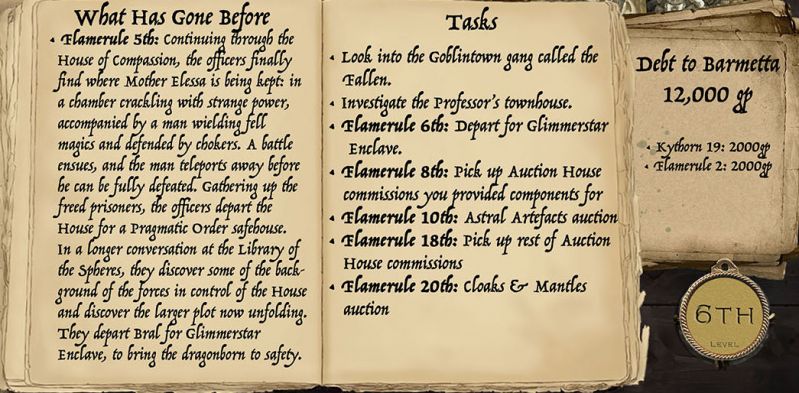 What Has Gone Before
• Flamerule 5th: Continuing through the
House of Compassion, the officers finally
find where Mother Elessa is being kept: in
a chamber crackling with strange power,
accompanied by a man wielding fell
magics and defended by chokers. A battle
ensues, and the man teleports away before
he can be fully defeated. Gathering up the
freed prisoners, the officers depart the
House for a Pragmatic Order safehouse.
In a longer conversation at the Library of
the Spheres, they discover some of the back-
ground of the forces in control of the House
and discover the larger plot now unfolding.
They depart Bral for Glimmerstar
Enclave, to bring the dragonborn to safety.
Tasks
• Look into the Goblintown gang called the
Fallen.
• Investigate the Professor's townhouse.
• Flamerule 6th: Depart for Glimmerstar
Enclave.
• Flamerule 8th: Pick up Auction House
commissions you provided components for
• Flamerule 10th: Astral Artefacts auction
• Flamerule 18th: Pick up rest of Auction
House commissions
• Flamerule 20th: Cloaks & Mantles
auction
Debt to Barmetta
12,000 gp
• Kythorn 19: 2000gp
• Flamerule 2: 2000gp
6TH
LEVEL